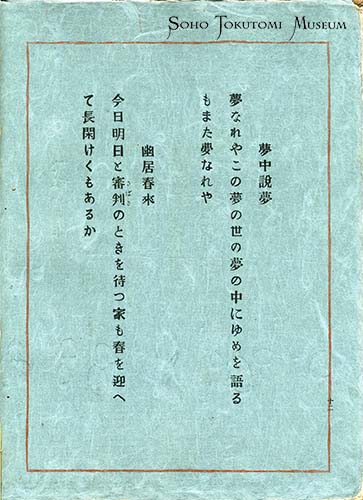 SOHO TOKUTOMI MUSEUM
夢中說夢
夢なれやこの夢の世の夢の中にゆめを語る
もまた夢なれや
幽居春來
今日明日と審判のときを待つ家も春を迎へ
さばき
て長閑けくもあるか
十二